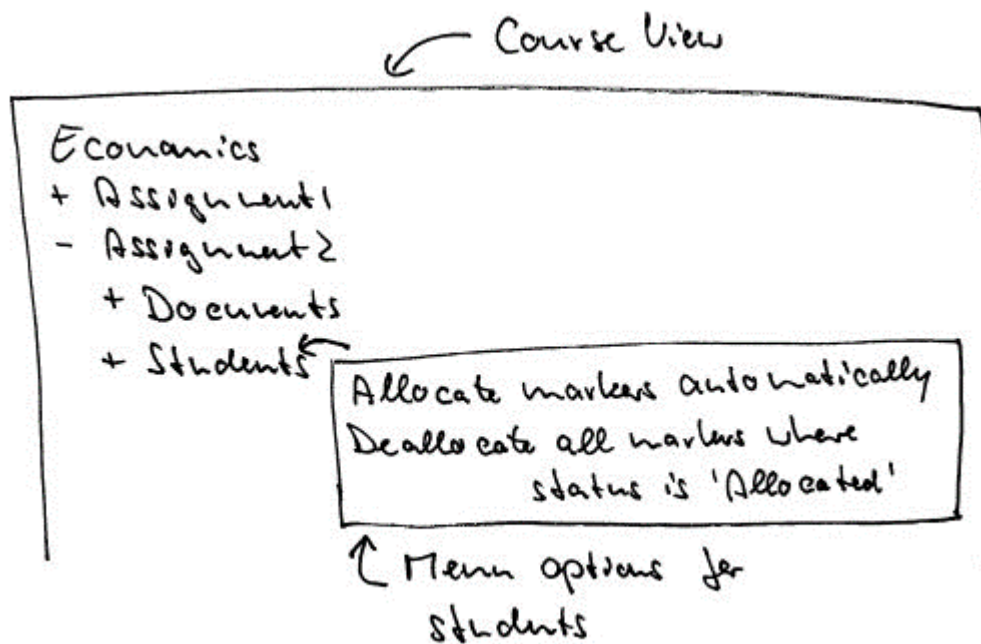 Course View
Economics
+ Assignment1
- Assignment2
+ Documents
+ Students
Allocate markers automatically
Deallocate all markers where
status is 'Allocated'
Menu options for
students